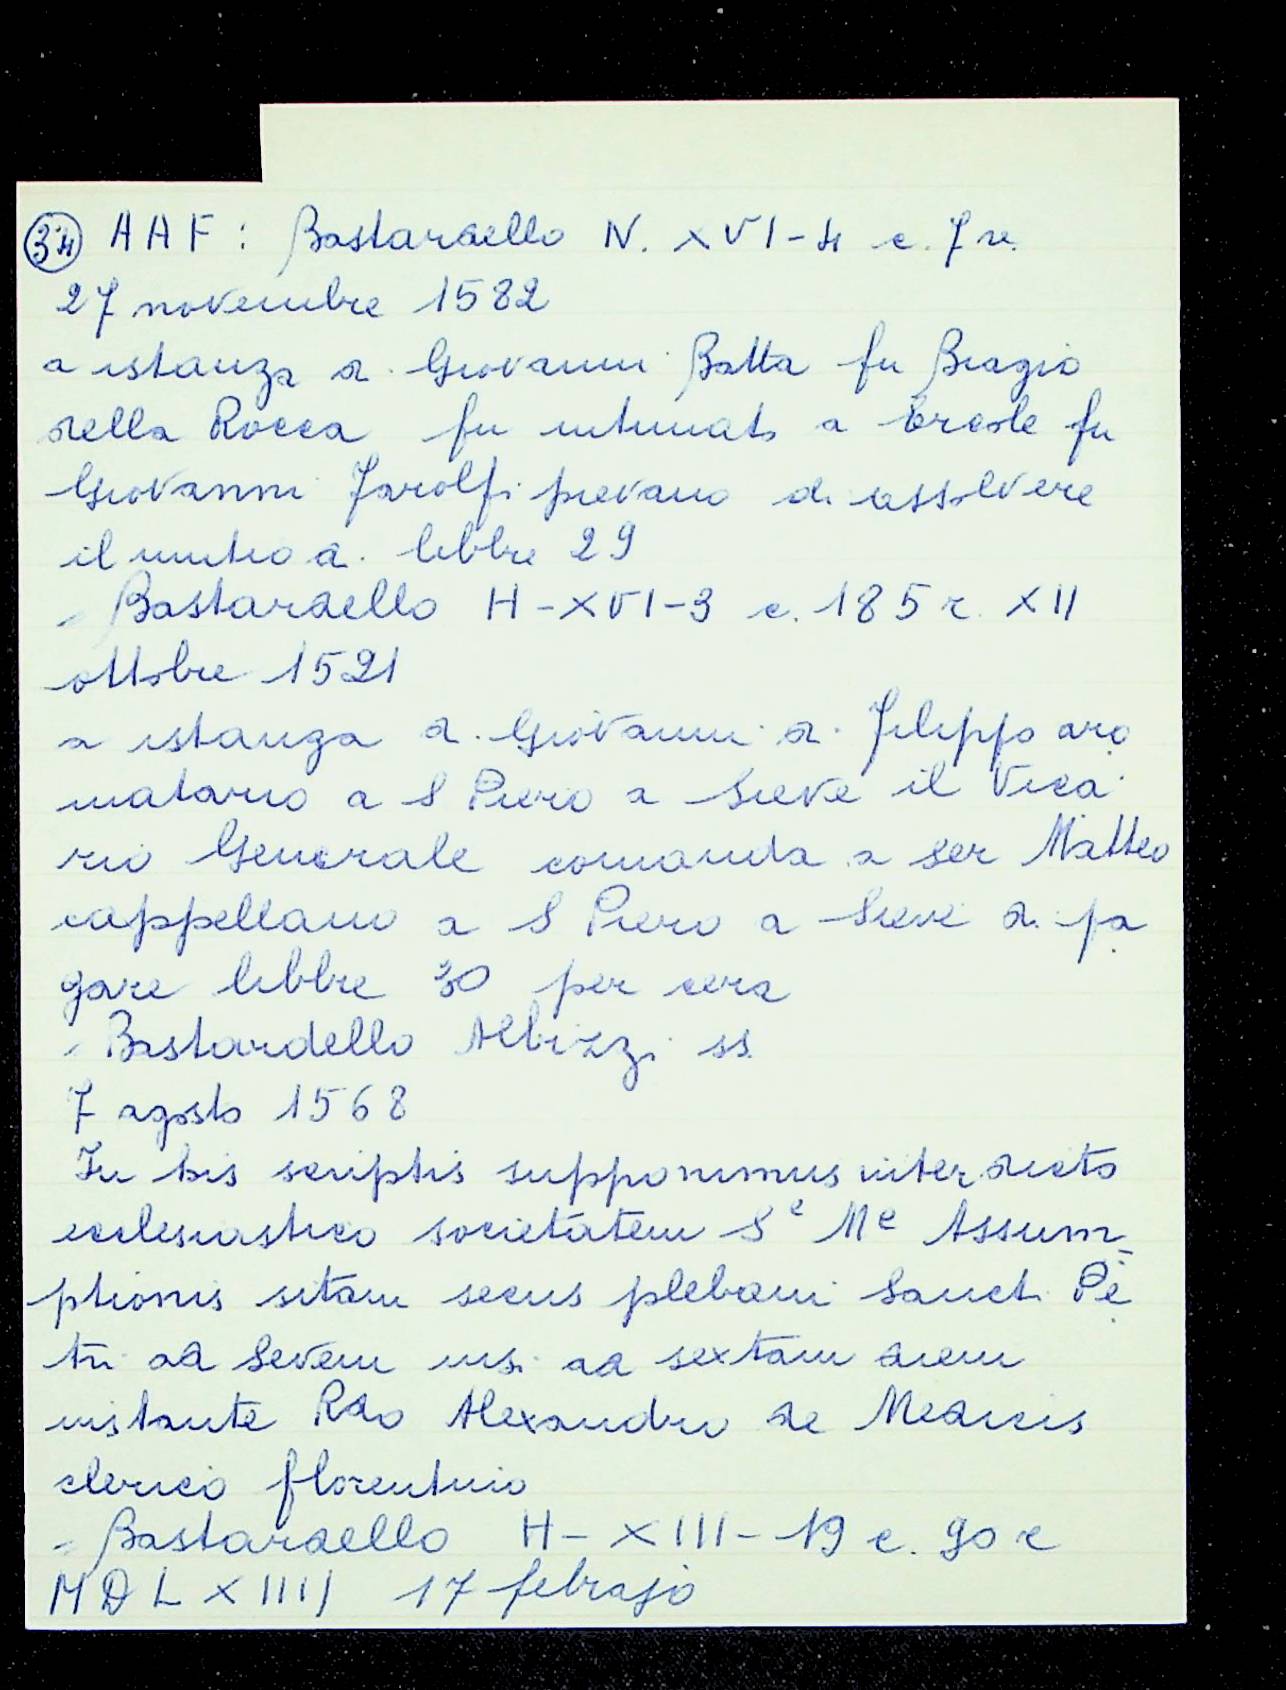 34 AAF: Bastardello N. XVI-4 c. 7 r.
27 novembre 1582
a istanza di Giovanni Batta fu Biagio
della Rocca fu intimato a Ercole fu
Giovanni Farolfi pievano di assolvere
il mutuo di libbre 29
- Bastardello H-XVI-3 c. 185 r. XII
ottobre 1521
a istanza di Giovanni di Filippo aro
matario a S Piero a Sieve il Vica
rio Generale comanda a ser Matteo
cappellano a S Piero a Sieve di pa
gare libbre 30 per cera
- Bastardello Albizzi ss.
7 agosto 1568
In his scriptis supponimus interdicto
ecclesiastico societatem Sᵉ Mᵉ Assum
ptionis sitam secus plebem Sancti Pe
tri ad Sevem nisi ad sextam diem
instante Rdo Alexandro de Medicis
clerico florentino
- Bastardello H-XIII-19 c. 90 r
MDLXIIIJ 17 febrajo